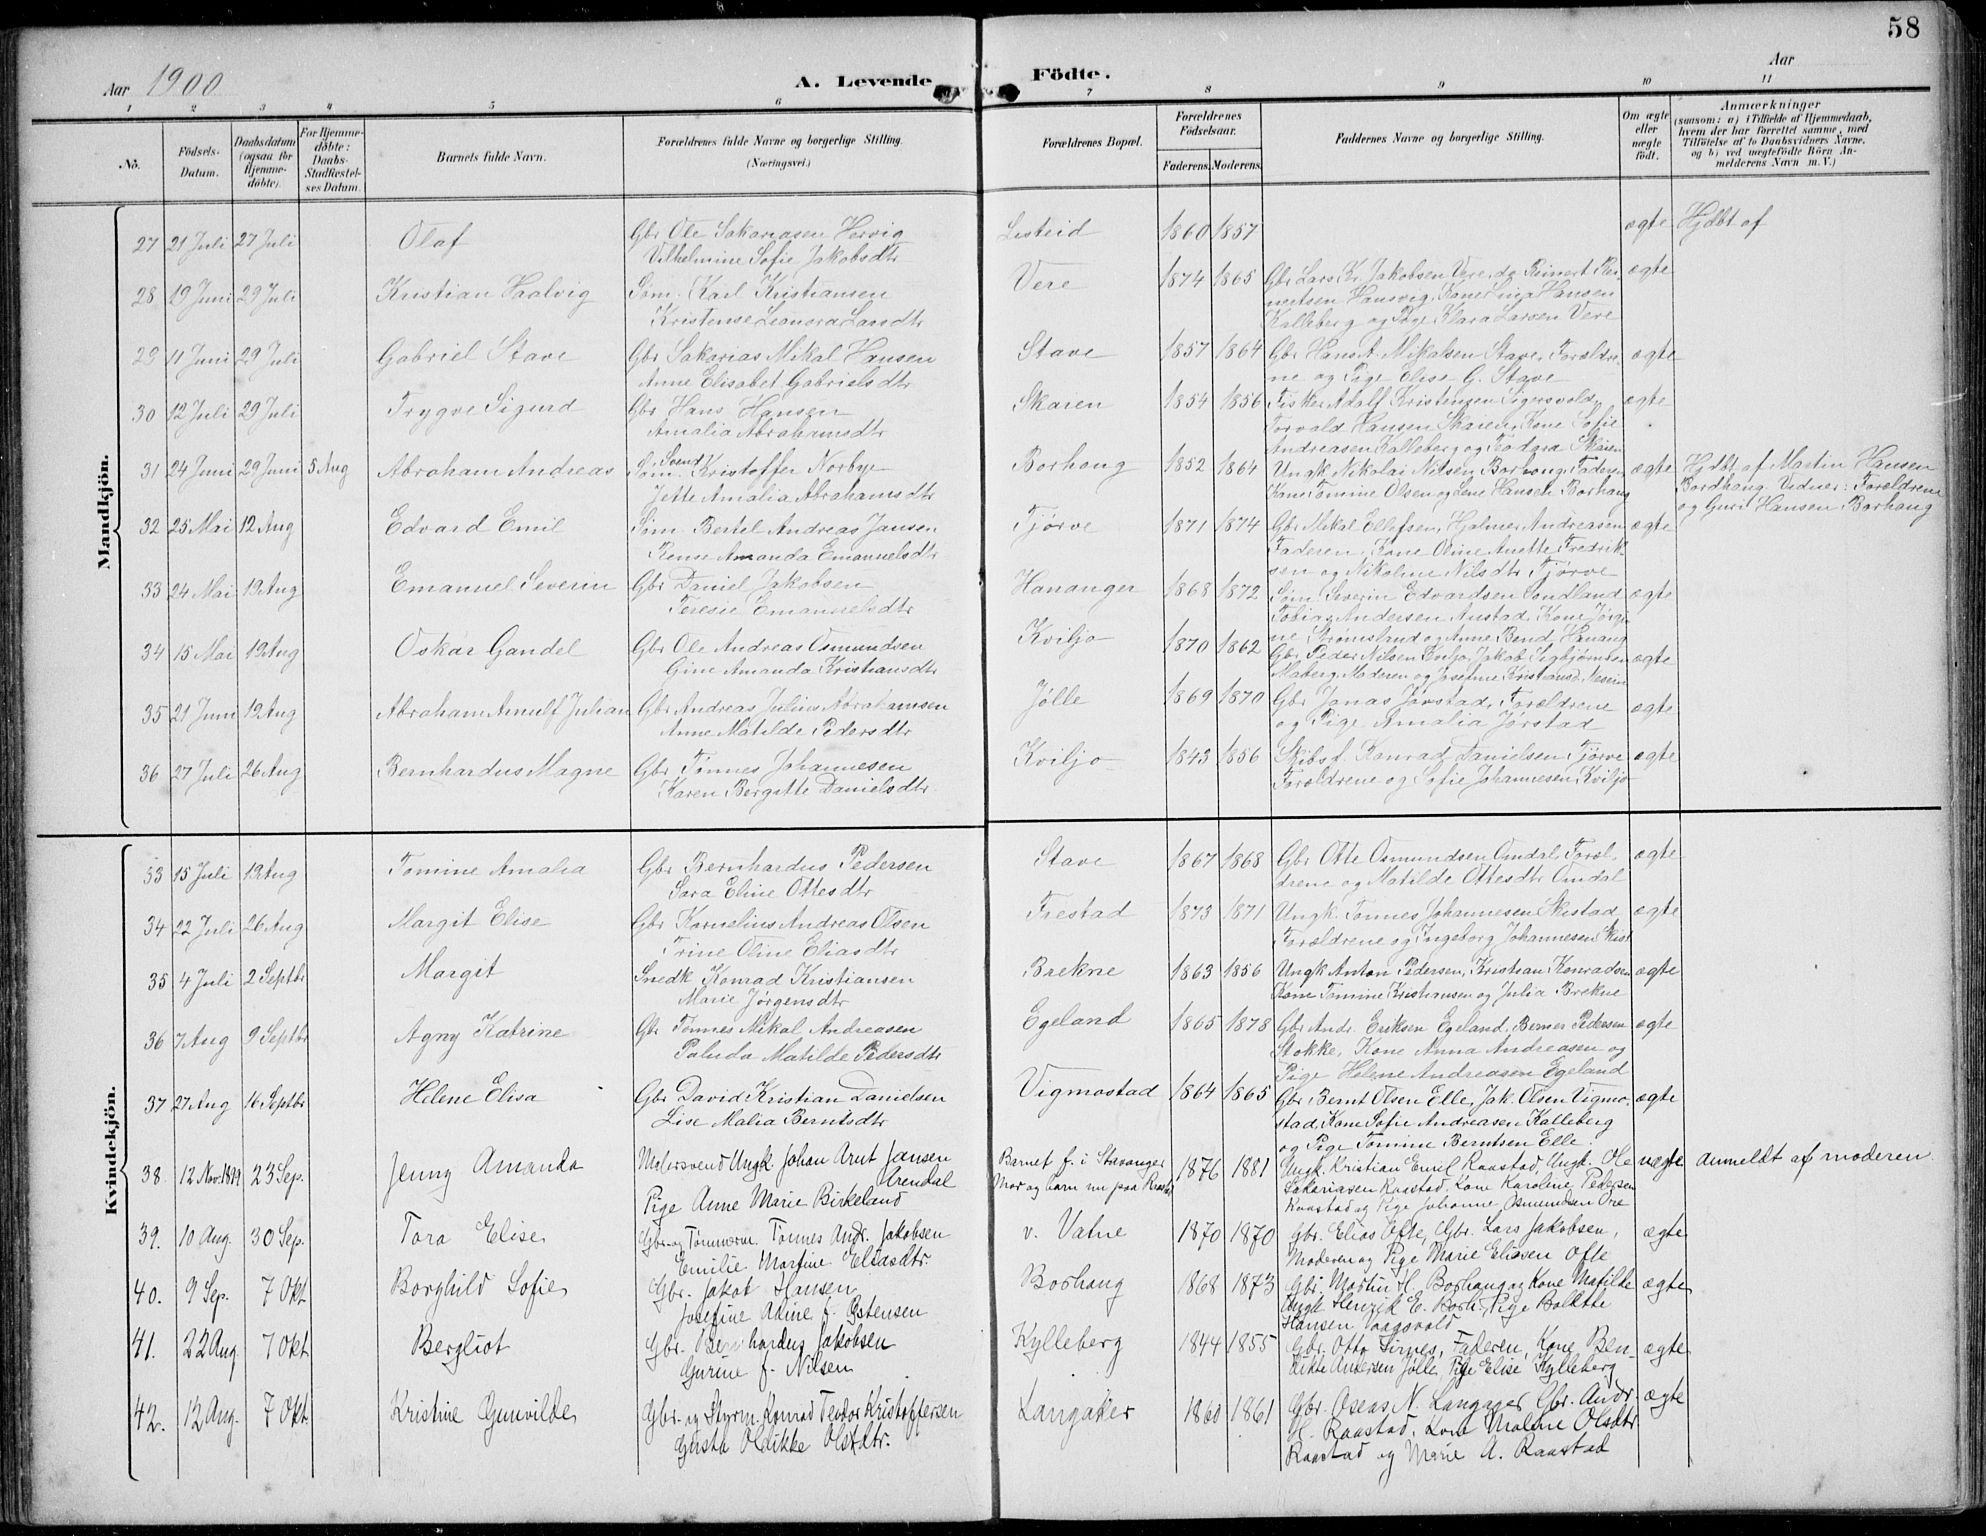 58
Aar 1900
A. Levende Födte.
Aar
1 2 3 4 5 6 7 8 9 10 11
No.
Födsels-Datum.
Daabsdatum (ogsaa for Hjemme-döbte).
For Hjemme-döbte: Daabs-Stadfæstel-ses Datum.
Barnets fulde Navn.
Forældrenes fulde Navne og borgerlige Stilling. (Næringsvei.)
Forældrenes Bopæl.
Forældrenes Födselsaar.
Faderens. Moderens.
Faddernes Navne og borgerlige Stilling.
Om ægte eller uægte født.
Anmærkninger (saasom: a) i Tilfælde af Hjemmedaab, hvem der har forrettet samme, med Tilföielse af to Daabsvidners Navne, og b) ved uægtefödte Börn An-melderens Navn m. V.)
Mandkjön.
27 21 Juli 27 Juli Olaf Gbr Ole Sakariasen Hervig Listeid 1860 1857 ægte Hjdbt af
Vilhelmine Sofie Jakobsdtr
28 19 Juni 29 Juli Kristian Haalvig Söm. Karl Kristiansen Vere 1874 1865 Gbr Lars Kr. Jakobsen Vere, do Reinert Rei- ægte
Kristense Leonora Larsdtr nertsen Hansvig, Kone Lina Hansen
Kalleberg og Pige Klara Larsen Vere
29 11 Juni 29 Juli Gabriel Stave Gbr Sakarias Mikal Hansen Stave 1857 1864 Gbr Hans A. Mikalsen Stave, Forældre- ægte
Anne Elisabet Gabrielsdtr ne og Pige Elise G. Stave
30 12 Juli 29 Juli Trygve Sigurd Gbr Hans Hansen Skaren 1854 1856 Fisker Adolf Kristensen Sigersvold, ægte
Amalia Abrahamsdtr Torvald Hansen Skaren, Kone Sofie
Andreasen Kalleberg og Teodora Skaren
31 24 Juni 29 Juni 5 Aug Abraham Andreas Söm. Svend Kristoffer Norbye Borhaug 1852 1864 Ungk Nikolai Nilsen Borhaug, Faderen ægte Hjdbt af Martin Hansen
Jette Amalia Abrahamsdtr Kone Tomine Olsen og Lene Hansen Borhaug Bordhaug. Vidner: Forældrene
og Guri Hansen Borhaug
32 25 Mai 12 Aug Edvard Emil Söm Bertel Andreas Jansen Tjørve 1871 1874 Gbr Mikal Ellefsen, Hjalmer Andreasen ægte
Rense Amanda Emanuelsdtr Faderen, Kone Oline Anette Fredrik-
sen og Nikoline Nilsdtr Tjørve
33 24 Mai 19 Aug Emanuel Severin Gbr Daniel Jakobsen Hananger 1868 1872 Söm Severin Edvardsen Sondland ægte
Teresie Emanuelsdtr Tobias Andersen Austad, Kone Jørgi-
ne Strømsland og Anne Bend. Hanang
34 15 Mai 19 Aug Oskar Gandel Gbr Ole Andreas Osmundsen Kviljo 1870 1862 Gbr Peder Nilsen Kviljo, Jakob Sigbjørnsen ægte
Gine Amanda Kristiansdtr Maberg, Moderen og Josefine Kristiansd.
35 21 Juni 19 Aug Abraham Arnulf Julian Gbr Andreas Julius Abrahamsen Jølle 1869 1870 Gbr Jonas Jørstad, Forældrene ægte
Anne Matilde Pedersdtr og Pige Amalia Jørstad
36 27 Juli 26 Aug Bernhardus Magne Gbr Tønnes Johannesen Kviljo 1843 1856 Skibsf. Konrad Danielsen, Tjørve ægte
Karen Bergitte Danielsdtr Forældrene og Sofie Johannesen, Kviljo
Kvindekjön.
33 15 Juli 19 Aug Tomine Amalia Gbr Bernhardus Pedersen Stave 1867 1868 Gbr Otte Osmundsen Omdal, Foræl- ægte
Sara Eline Ottesdtr drene og Matilde Ottesdtr Omdal
34 22 Juli 26 Aug Margit Elise Gbr Kornelius Andreas Olsen Frestad 1873 1871 Ungk. Tønnes Johannesen Skistad ægte
Trine Oline Eliasdtr Forældrene og Ingeborg Johannesen Skist
35 4 Juli 2 Septbr Margit Snedk Konrad Kristiansen Brekne 1863 1856 Ungk Anton Pedersen, Kristian Konradsen ægte
Marie Jørgensdtr Kone Tomine Kristiansen og Julia Brekne
36 7 Aug 9 Septbr Agny Katrine Gbr Tønnes Mikal Andreasen Egeland 1865 1878 Gbr Andr. Eriksen Egeland, Berner Pedersen ægte
Paluda Matilde Pedersdtr Stokke, Kone Anna Andreasen og
Pige Helene Andreasen Egeland
37 27 Aug 16 Septbr Helene Elisa Gbr David Kristian Danielsen Vigmostad 1864 1865 Gbr Bernt Olsen Elle, Jak. Olsen Vigmo- ægte
Lise Malia Berntsdtr stad, Kone Sofie Andreasen Kalleberg
og Pige Tomine Berntsen Elle.
38. 12 Nov. 1899 23 Sep. Jenny Amanda Malersvend Ungk. Johan Arnt Jansen Arendal Barnet f. i Stavanger 1876 1881 Ungk. Kristian Emil Raastad, Ungk. Ole uægte anmeldt af moderen.
Pige Anne Marie Birkeland Mor og barn nu paa Raastad Sakariasen Raastad, Kone Karoline Pedersen
Raastad og Pige Johanne Osmundsen Ore
39. 10 Aug. 30 Sep. Tora Elise Gbr. og Tømmerm. Tønnes Andr. Jakobsen v. Vatne 1870 1870 Gbr. Elias Ofte, Gbr. Lars Jakobsen, ægte
Emilie Martine Eliasdtr. Moderen og Pige Marie Eliasen Ofte
40. 9 Sep. 7 Okt Borghild Sofie Gbr. Jakob Hansen Borhaug 1868 1873 Gbr. Martin H. Borhaug og Kone Matilde ægte
Josefine Adine f. Østensen Ungk Henrik E. Borh., Pige Bolette
Hansen Vaagsvold
41. 22 Aug 7 Okt Bergliot Gbr. Bernhardus Jakobsen Kylleberg 1844 1855 Gbr. Otto Sirnes, Faderen, Kone Ben- ægte
Gurine f. Nilsen dikte Andersen Jølle, Pige Elise Kylleberg
42. 12 Aug. 7 Okt Kristine Gunvilde Gbr. og Styrm. Konrad Teodor Kristoffersen Langaker 1860 1861 Gbr. Oseas N. Langager Gbr. Andr. ægte
Gusta Oldikke Olsdtr. H. Raastad, Kone Malene Olsdtr
Raastad og Marie A. Raastad